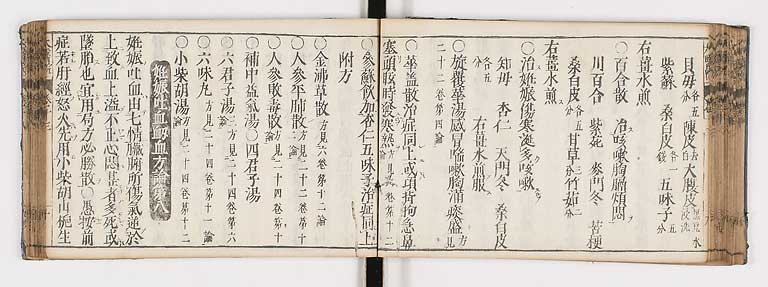 貝毋各五分 陳皮去白 大腹皮
紫蘇 桑白皮各一錢 五味子五分
右薑水煎
○百合散 治咳嗽胸膈煩悶
川百合 紫菀 麥門冬 苦梗
桑白皮各五分 甘草三分 竹茹二分
右薑水煎
○治姙娠傷寒涎多咳嗽
知毋 杏仁 天門冬 桑白皮各五分
右薑水煎服
○旋覆華湯感冒喘嗽胸滿痰盛方見
二十二卷第四論
○華盖散治症同上或項背拘急鼻
塞頭眩時發寒熱方見 卷第十二
○參蘇飲加杏仁五味子治症同上
附方
○金沸草散方見六卷第十二論
○人參平肺散方見二十二卷第十論
○人參敗毒散方見二十四卷第十論
○補中益氣湯○四君子湯
○六君子湯三方見二十四卷第六論
○六味丸方見二十四卷第十一論
○小柴胡湯方見二十四卷第十二論
姙娠吐血衂血方論第八
姙娠吐血由七情臟腑所傷氣逆於
上致血上溢不止心悶甚者多死或
墜胎也宜用局方必勝散○愚按前
症若肝經怒火先用小柴胡山梔生